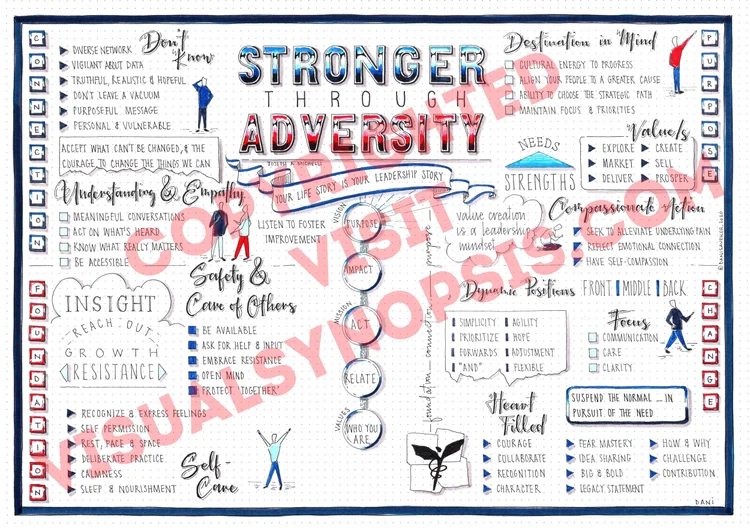 CONNECTION
Don't Know
DIVERSE NETWORK
VIGILANT ABOUT DATA
TRUTHFUL, REALISTIC & HOPEFUL
DON'T LEAVE A VACUUM
PURPOSEFUL MESSAGE
PERSONAL & VULNERABLE
ACCEPT WHAT CAN'T BE CHANGED, & THE
COURAGE TO CHANGE THE THINGS WE CAN
Understanding & Empathy
MEANINGFUL CONVERSATIONS
ACT ON WHAT'S HEARD
KNOW WHAT REALLY MATTERS
BE ACCESSIBLE
LISTEN TO FOSTER
IMPROVEMENT
STRONGER
THROUGH
ADVERSITY
JOSEPH A. MICHELLI
YOUR LIFE STORY IS YOUR LEADERSHIP STORY
Destination in Mind
CULTURAL ENERGY TO PROGRESS
ALIGN YOUR PEOPLE TO A GREATER CAUSE
ABILITY TO CHOOSE THE STRATEGIC PATH
MAINTAIN FOCUS & PRIORITIES
PURPOSE
NEEDS
STRENGTHS
Value/s
EXPLORE CREATE
MARKET SELL
DELIVER PROSPER
value creation
is a leadership
mindset
Compassionate Action
SEEK TO ALLEVIATE UNDERLYING PAIN
REFLECT EMOTIONAL CONNECTION
HAVE SELF-COMPASSION
FOUNDATION
INSIGHT
REACH OUT
GROWTH
RESISTANCE
Safety &
Care of Others
BE AVAILABLE
ASK FOR HELP & INPUT
EMBRACE RESISTANCE
OPEN MIND
PROTECT "TOGETHER"
RECOGNIZE & EXPRESS FEELINGS
SELF PERMISSION
REST, PACE & SPACE
DELIBERATE PRACTICE
CALMNESS
SLEEP & NOURISHMENT
Self-
Care
VISION
PURPOSE
IMPACT
MISSION
ACT
RELATE
VALUES
WHO YOU
ARE
foundation — connection — purpose
Dynamic Positions
FRONT | MIDDLE | BACK
SIMPLICITY AGILITY
PRIORITIZE HOPE
FORWARDS ADJUSTMENT
"AND" FLEXIBLE
Focus
COMMUNICATION
CARE
CLARITY
CHANGE
SUSPEND THE NORMAL ... IN
PURSUIT OF THE NEED
Heart
Filled
COURAGE
COLLABORATE
RECOGNITION
CHARACTER
FEAR MASTERY
IDEA SHARING
BIG & BOLD
LEGACY STATEMENT
HOW & WHY
CHALLENGE
CONTRIBUTION
DANI
COPYRIGHTED
VISIT
VISUALSYNOPSIS.COM